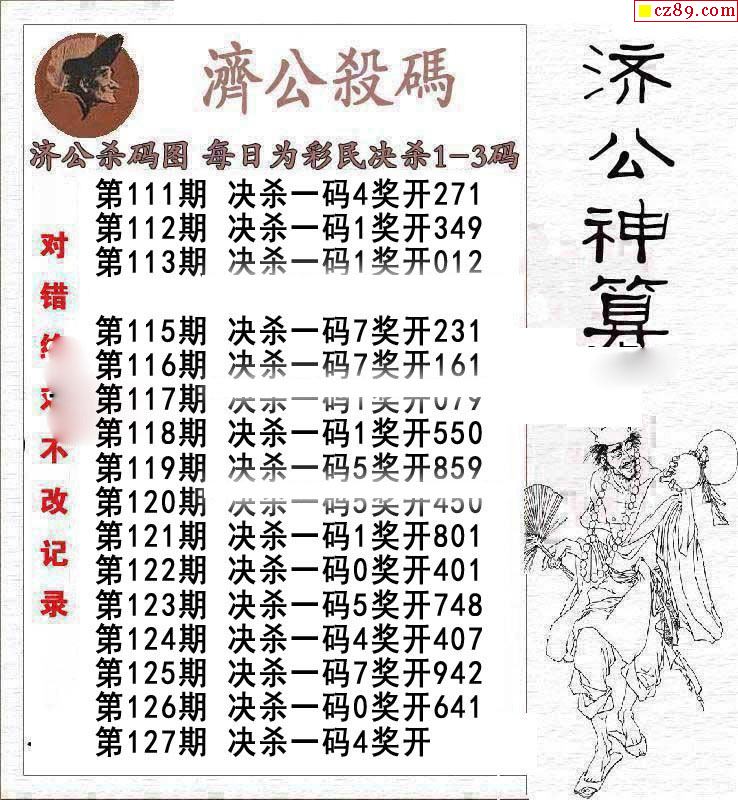 cz89.com
濟公殺碼
济公杀码图 每日为彩民决杀1-3码
第111期 决杀一码4奖开271
第112期 决杀一码1奖开349
第113期 决杀一码1奖开012
第115期 决杀一码7奖开231
第116期 决杀一码7奖开161
第117期 决杀一码1奖开079
第118期 决杀一码1奖开550
第119期 决杀一码5奖开859
第120期 决杀一码5奖开450
第121期 决杀一码1奖开801
第122期 决杀一码0奖开401
第123期 决杀一码5奖开748
第124期 决杀一码4奖开407
第125期 决杀一码7奖开942
第126期 决杀一码0奖开641
第127期 决杀一码4奖开
对错
不改记录
济公神算